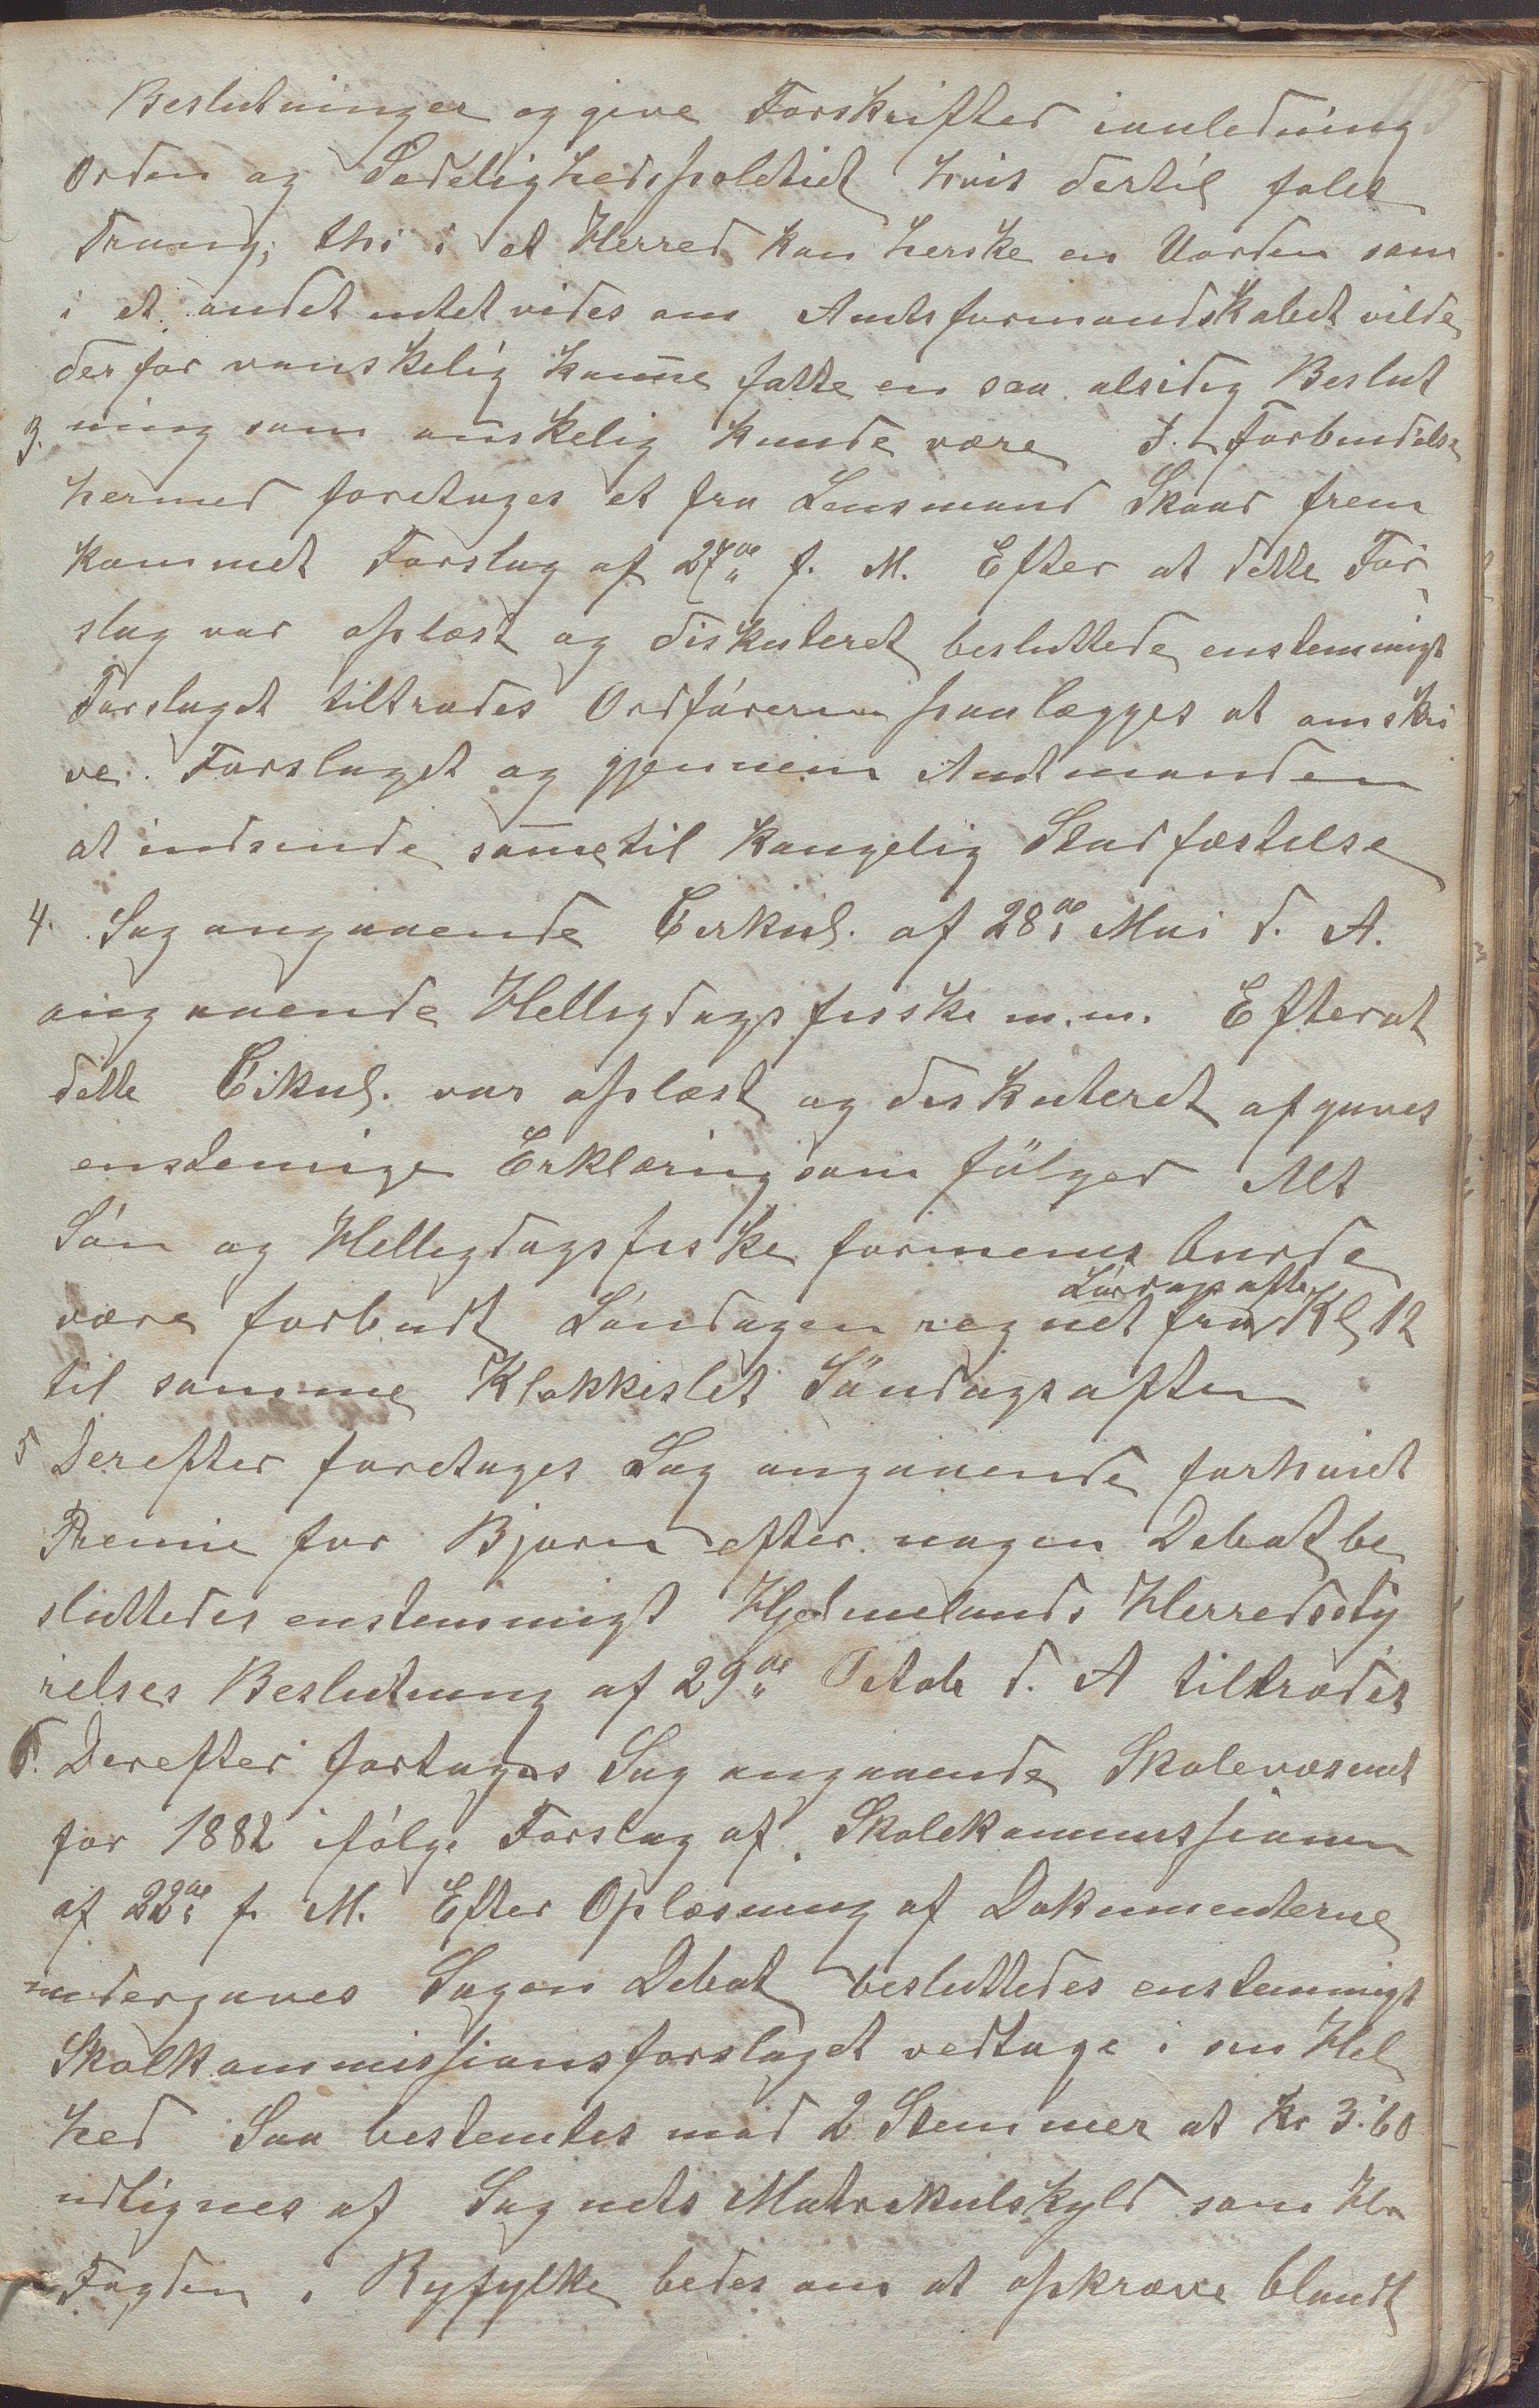 Beslutninger og give Forskrifter ianledning
Orden og Sædelighedspoletiet hvis dertil føles
Trang; thi i et Herred kan herske en Uorden som
i et andet intet vides om Amtsformandskabet vilde
derfor vanskelig kunne fatte en saa alsidig Beslut
3. ning som ønskelig kunde være I. Forbindelse
hermed foretages et fra Lensmand Skaar frem
kommet Forslag af 27de f. M. Efter at dette For
slag var oplæst og diskuteret besluttede enstemmigt
Forslaget tiltrædes Ordføreren paalægges at omskri
ve. Forslaget og gjennem Amtmanden
at indsende samme til kongelig Stadfæstelse
4. Sag angaaende Cirkul. af 28de Mai d. A.
angaaende Helligdagsfiske m.m. Efterat
dette Cikul. var oplæst og diskuteret afgaves
enstemige Erklæring som følger Alt
Søn og Helligdagsfiske formenes burde
være forbudt Søndagen regnet fra Lørdagsaften Kl 12
til samme Klokkeslet Søndagsaften
5 Derefter foretages Sag angaaende forhøiet
Premie for Bjørn efter nogen Debat be
sluttedes enstemmigt Hjelmelands Herredsty
relses Beslutning af 29de Octob d. A tiltrædes
6. Derefter fortages Sag angaaende Skolevæsenet
for 1882 ifølge Forslag af Skolekommissionen
af 22de f. M. Efter Oplæsning af Dokumenterne
undergaves Sagen Debat besluttedes enstemmigt
Skolkommissionsforslaget vedtage i sin Hel
hed Saa bestemtes mod 2 Stemmer at Kr 3.60
udlignes af Sognets Matrikulskyld som Hr
Fogden i Ryfylke bedes om at opkræve blandt